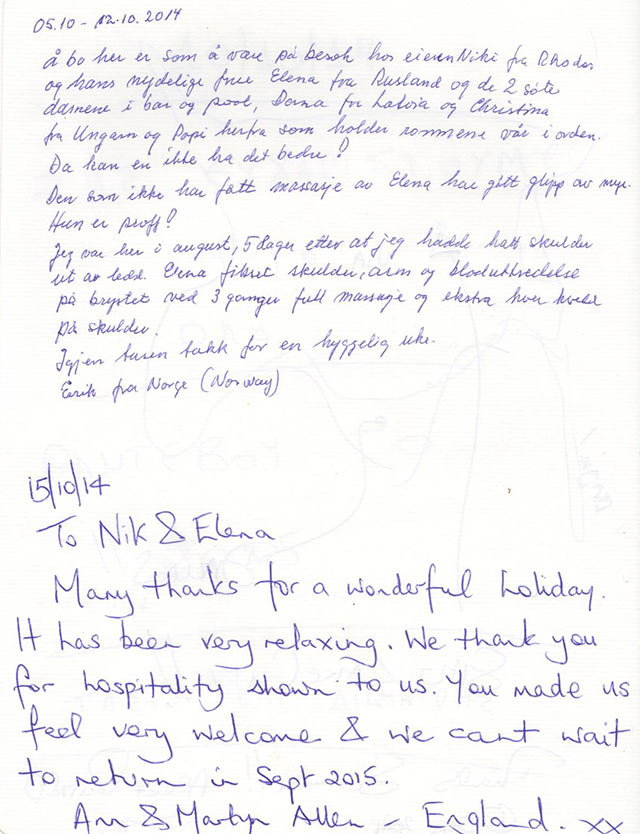 05.10 - 12.10.2014
Å bo her er som å være på besøk hos eieren Niki fra Rhodos
og hans nydelige frue Elena fra Russland og de 2 søte
damene i bar og pool, Dana fra Latvia og Christina
fra Ungarn og Popi herfra som holder rommene vår i orden.
Da kan en ikke ha det bedre!
Den som ikke har fått massasje av Elena har gått glipp av mye.
Hun er proff!
Jeg var her i august, 5 dager etter at jeg hadde hatt skulder
ut av ledd. Elena fikset skulder, arm og blodutredelse
på brystet ved 3 ganger full massasje og ekstra hver kveld
på skulder.
Igjen tusen takk for en hyggelig uke.
Eirik fra Norge (Norway)
15/10/14
To Nik & Elena
Many thanks for a wonderful holiday.
It has been very relaxing. We thank you
for hospitality shown to us. You made us
feel very welcome & we cant wait
to return in Sept 2015.
Ann & Martyn Allen - England. xx